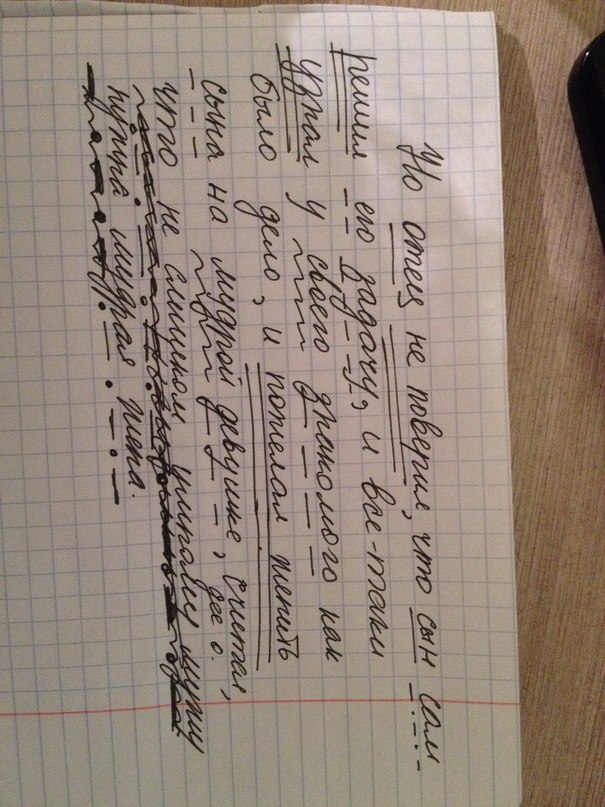 Но отец не поверил, что сын сам
решил его задачу, и все-таки
узнал у своего знакомого как
было дело, и пожелал женить
сына на мудрой девушке, считая,
дее о.
что не слишком умному мужу
нужна мудрая жена.